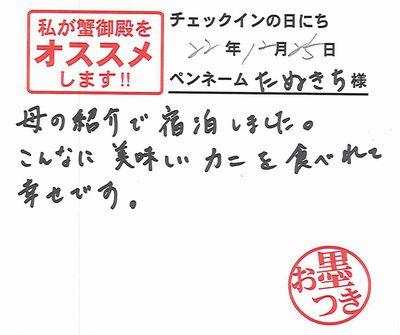 私が蟹御殿を
オススメ
します!!
チェックインの日にち
22年12月25日
ペンネーム たぬきち 様
母の紹介で宿泊しました。
こんなに美味しいカニを食べれて
幸せです。
お墨つき